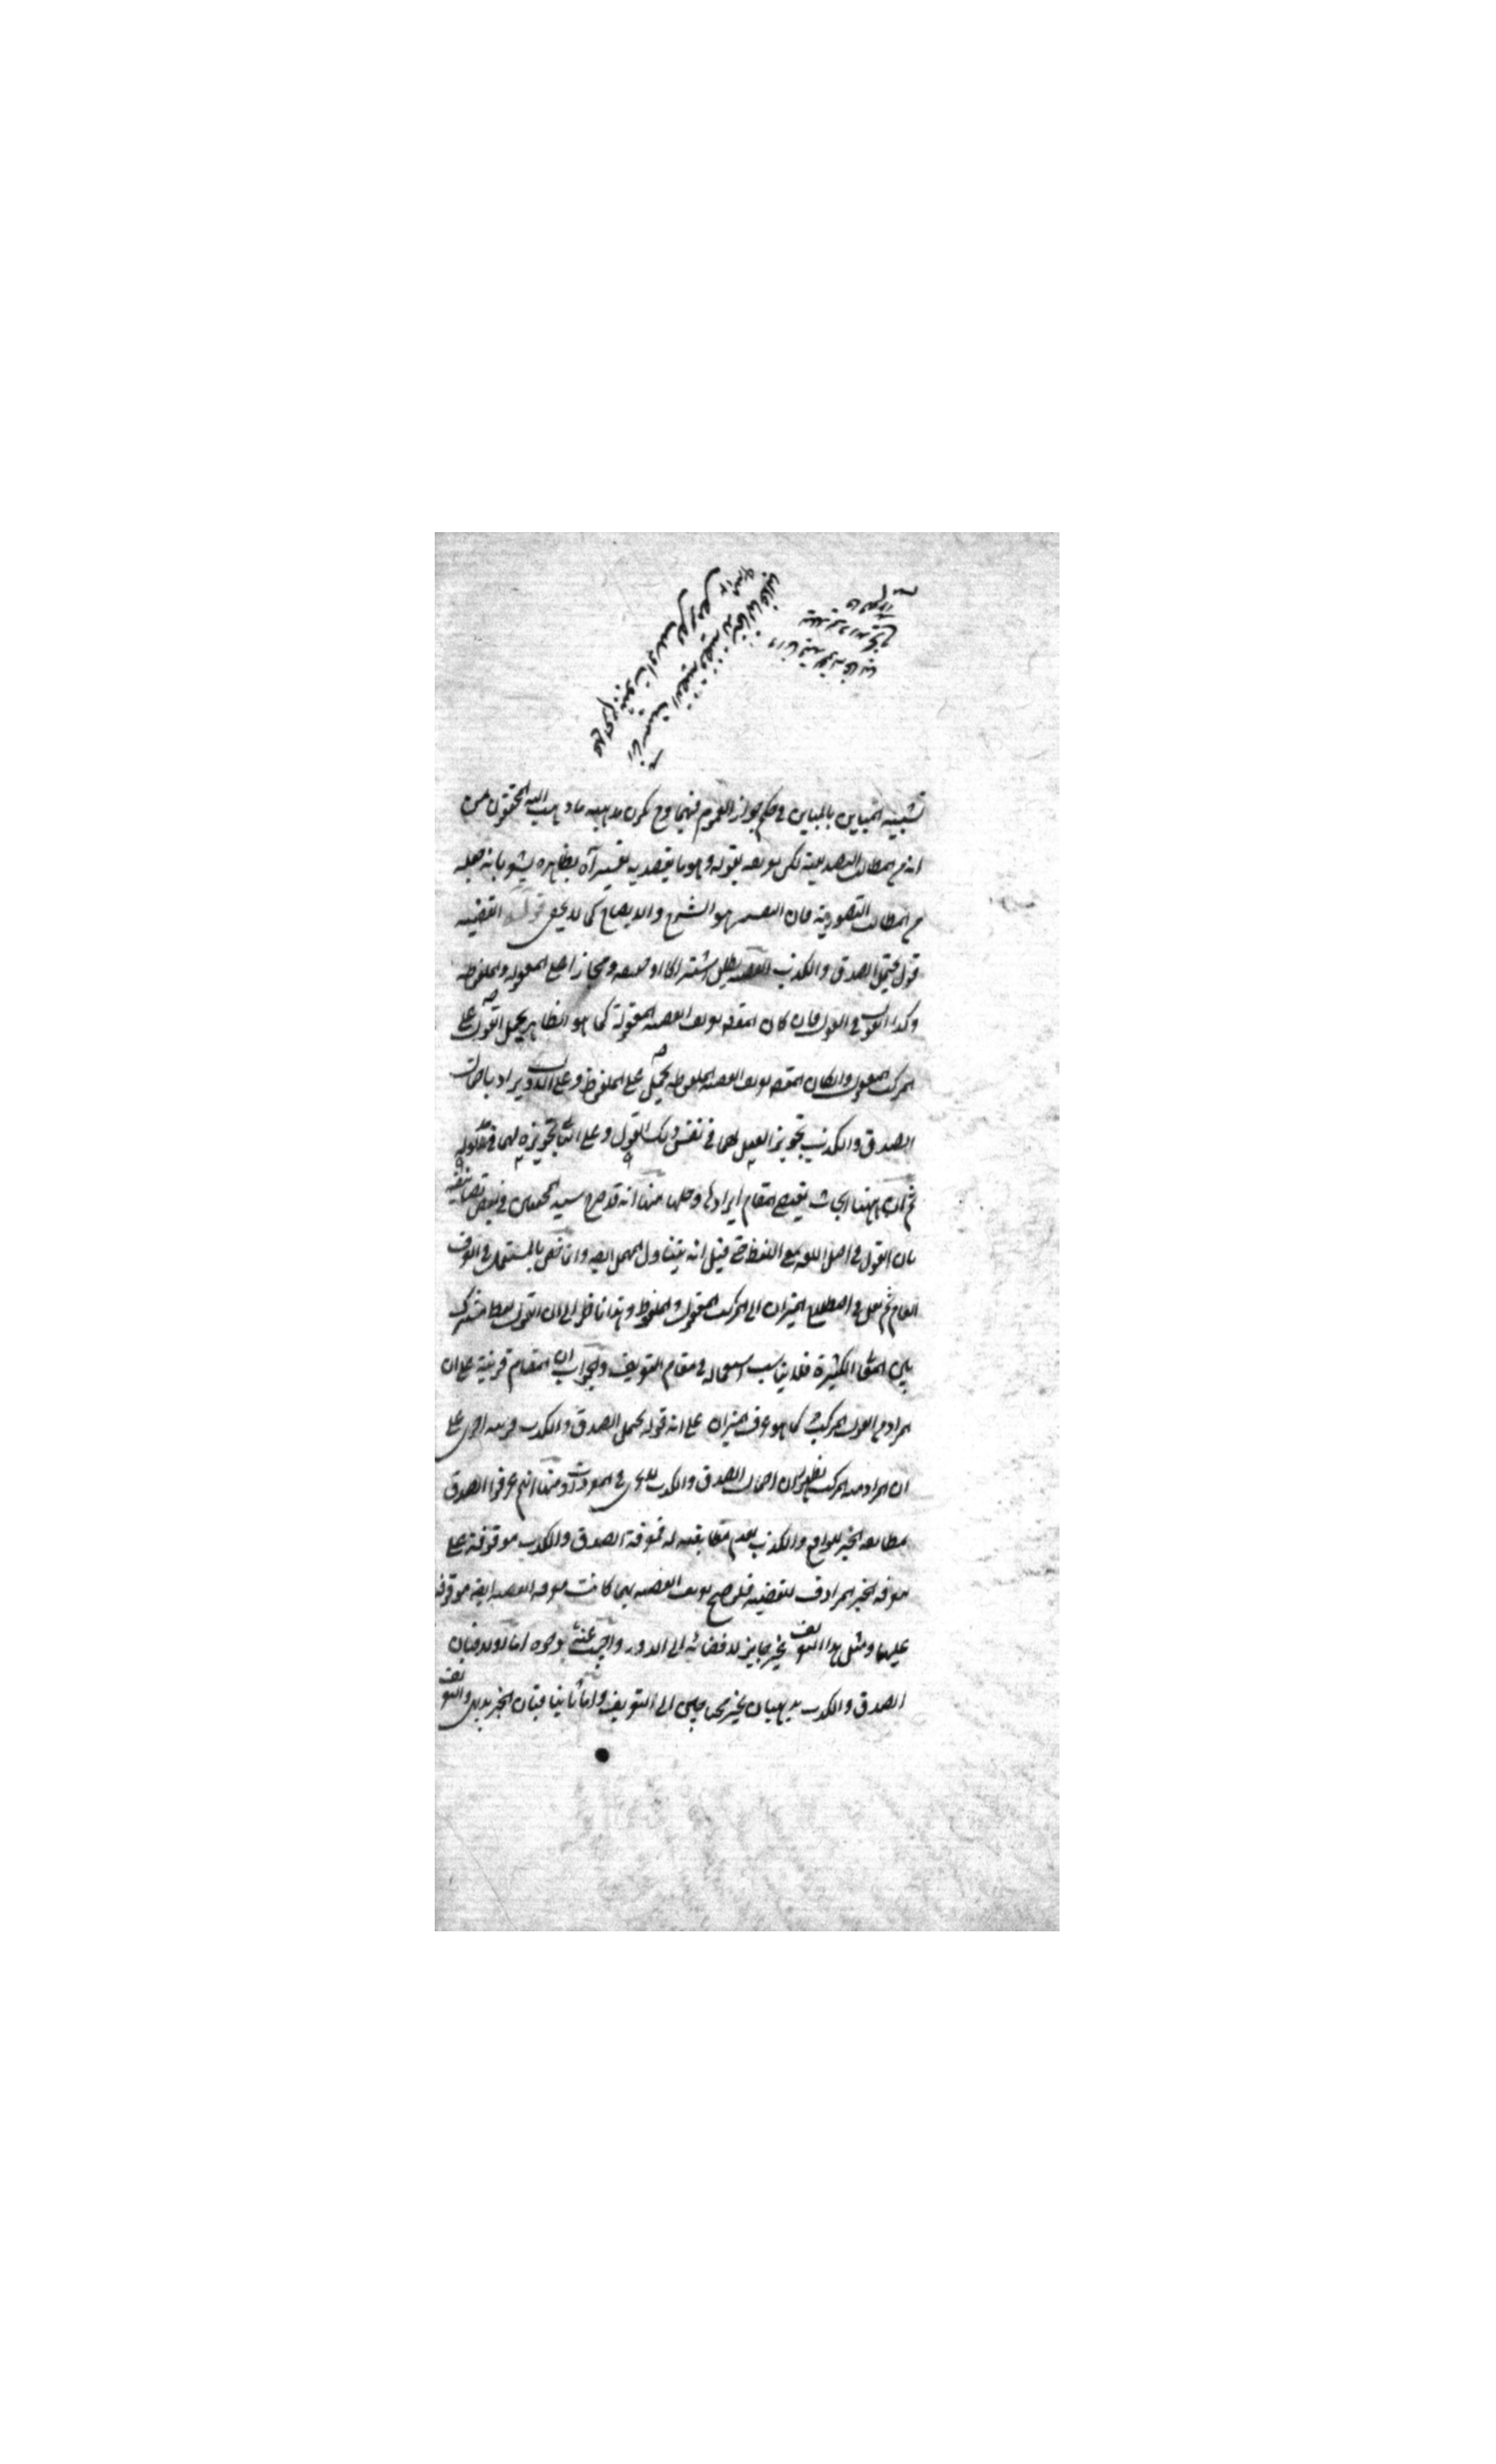 تشبيه المتباين بالمباين في حكم جواز العموم فيهما وح يكون مذهبه ما ذهب اليه المحققون من
انه من المطالب التصديقية لكن تعريفه بقوله وهو ما يقصد به تفسير آه بظاهره يشعر بانه جعله
من المطالب التصورية فان التفسير هو الشرح والايضاح كما لا يخفى قوله القضية
قول يحتمل الصدق والكذب القضية يطلق اشتراكا او حقيقة ومجازا على المعقولة والملفوظة
وكذا القول في القول فان كان المقصد تعريف القضية المعقولة كما هو الظاهر يحمل القول على
المركب المعقول وان كان المقصد تعريف القضية الملفوظة يحمل على الملفوظ وعلى الاول يراد باحتمال
الصدق والكذب تجويز العقل لهما في نفس ذلك القول وعلى الثاني تجويزه لهما في مدلوله
ثم ان ههنا ابحاث يقتضي المقام ايرادها وحلها منها انه قد صرح سيد المحققين في بعض تصانيفه
بان القول في اصل اللغة مع اللفظ حتى قيل انه يتناول المهمل ايضه وانما خص بالمستعمل في العرف
العام ثم نقل في اصطلاح الميزان الى المركب المعقول والملفوظ وهذا ناظر الى ان القول لفظ مشترك
بين المعاني الكثيرة فلا يناسب استعماله في مقام التعريف والجواب ان المقام قرينة على ان
المراد من القول المركب كما هو عرف الميزان على انه قوله يحتمل الصدق والكذب قرينة اخرى على
ان المراد منه المركب لظهور ان احتمال الصدق والكذب لا يجري في المفردات ومنها انهم عرفوا الصدق
بمطابقة الخبر للواقع والكذب بعدم مطابقته له فمعرفة الصدق والكذب موقوفة على
معرفة الخبر المرادف للقضية فلو صح تعريف القضية بهما كانت معرفة القضية ايضه موقوفة
عليهما ومثل هذا التعريف غير جايز لافضائه الى الدور واجيب عنه بوجوه اما اولا فبان
الصدق والكذب بديهيان غير محتاجين الى التعريف واما ثانيا فبان الخبر بديهي والتعريف